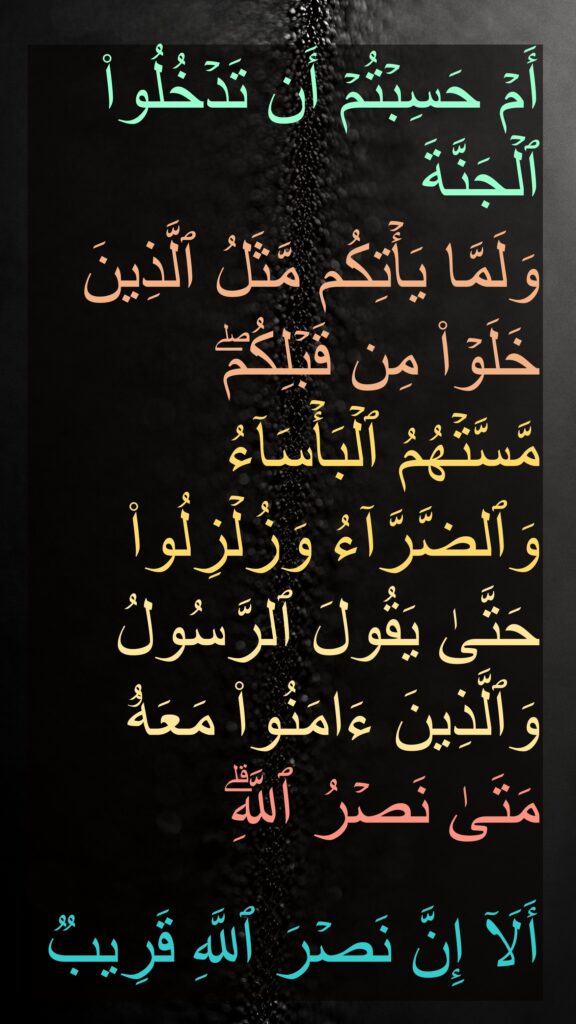 أَمۡ حَسِبۡتُمۡ أَن تَدۡخُلُواْ
ٱلۡجَنَّةَ
وَلَمَّا يَأۡتِكُم مَّثَلُ ٱلَّذِينَ
خَلَوۡاْ مِن قَبۡلِكُمۖ
مَّسَّتۡهُمُ ٱلۡبَأۡسَآءُ
وَٱلضَّرَّآءُ وَزُلۡزِلُواْ
حَتَّىٰ يَقُولَ ٱلرَّسُولُ
وَٱلَّذِينَ ءَامَنُواْ مَعَهُۥ
مَتَىٰ نَصۡرُ ٱللَّهِۗ
أَلَآ إِنَّ نَصۡرَ ٱللَّهِ قَرِيبٞ